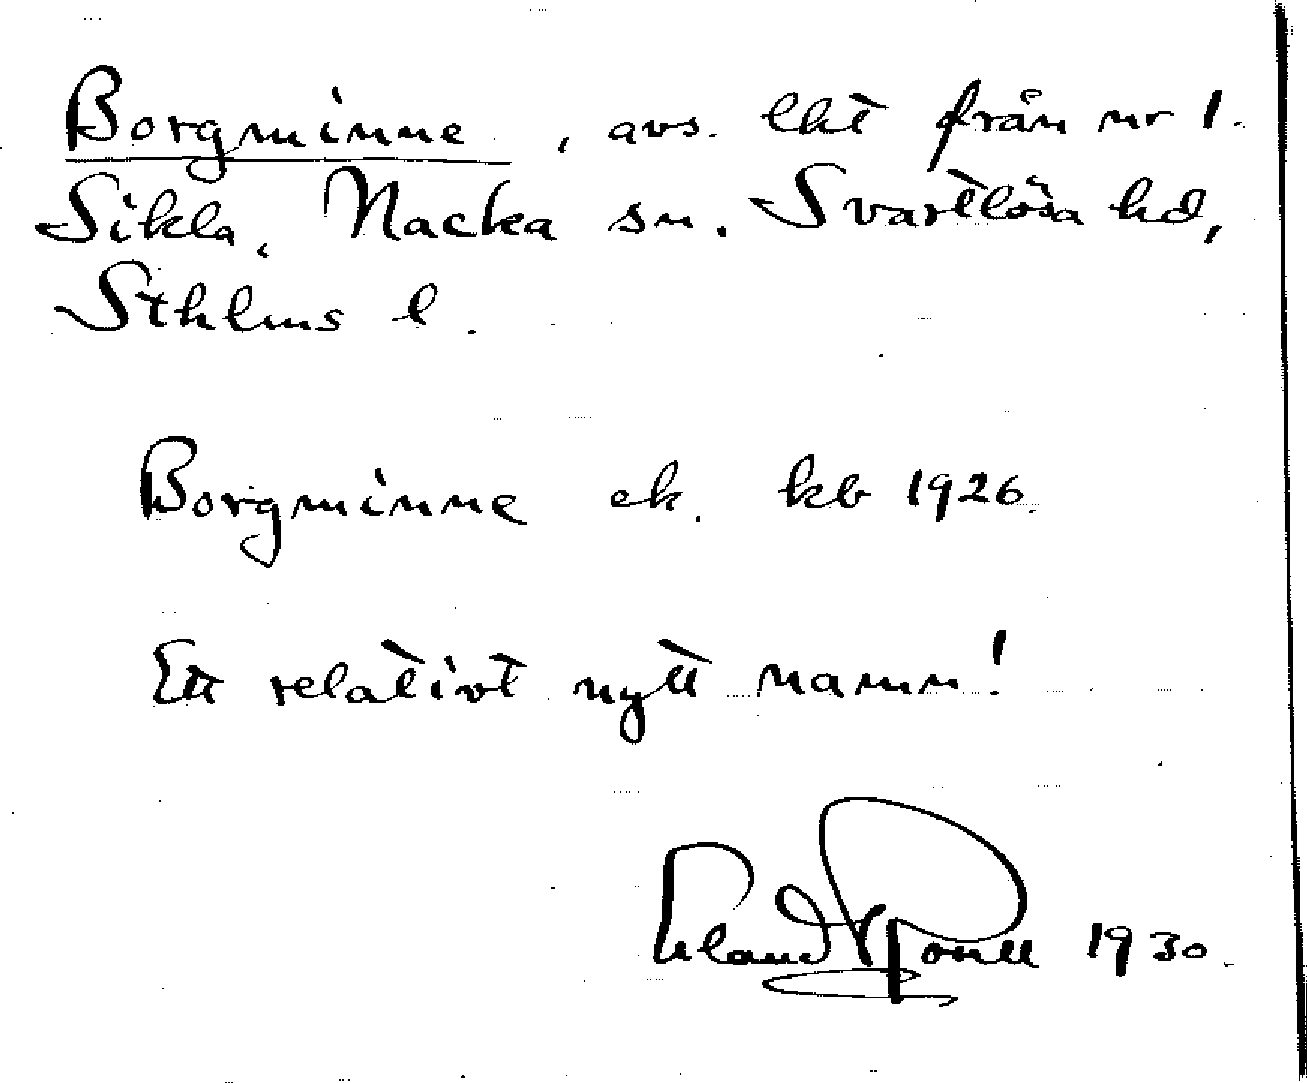 Borgminne, avs. lht från nr 1.
Sikla, Nacka sn. Svartlösa hd,
Sthlms l.
Borgminne ek. kb 1926.
Ett relativt nytt namn!
1930.